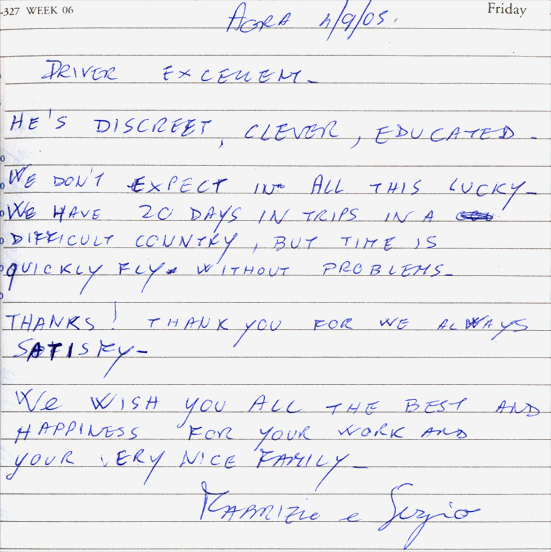 -327 WEEK 06
Friday
AGRA 4/9/05.
DRIVER EXCELLENT-
HE'S DISCREET, CLEVER, EDUCATED-
WE DON'T EXPECT IN ALL THIS LUCKY-
WE HAVE 20 DAYS IN TRIPS IN A
DIFFICULT COUNTRY, BUT TIME IS
QUICKLY FLY WITHOUT PROBLEMS-
THANKS! THANK YOU FOR WE ALWAYS
SATISFY-
WE WISH YOU ALL THE BEST AND
HAPPINESS FOR YOUR WORK AND
YOUR VERY NICE FAMILY-
FABRIZIO e Sergio